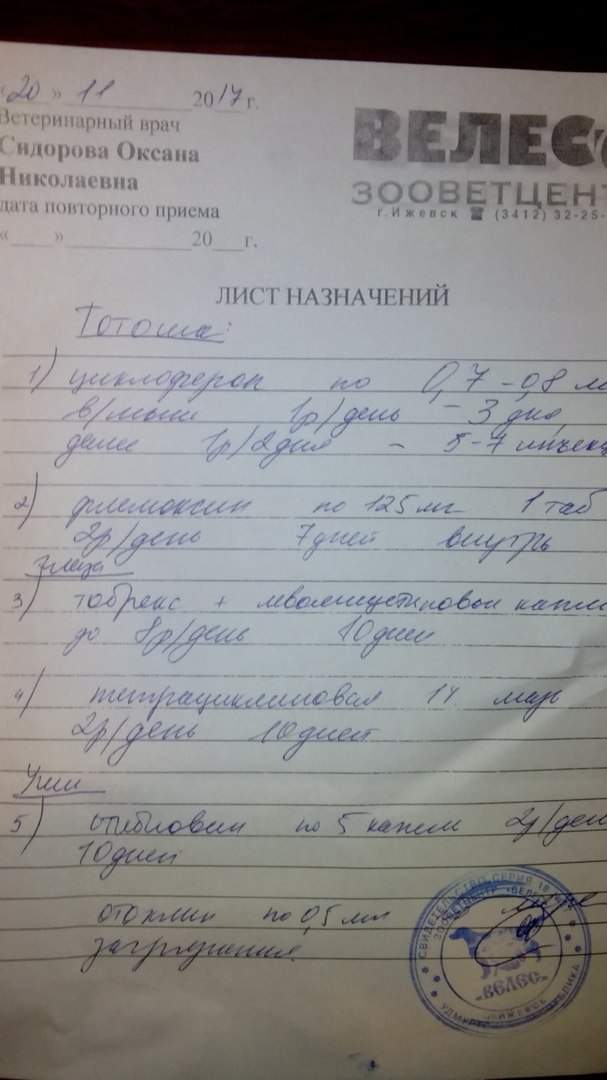 «20» 11 2017 г.
Ветеринарный врач
Сидорова Оксана
Николаевна
дата повторного приема
«___»____________20___г.
ВЕЛЕС
ЗООВЕТЦЕНТ
г.Ижевск ☎ (3412) 32-25-
ЛИСТ НАЗНАЧЕНИЙ
Тотоша:
1) циклоферон по 0,7-0,8 м
в/мыш 1р/день - 3 дня,
далее 1р/2дня - 5-7 инъекц
2) флемоксин по 125мг 1 таб
2р/день 7дней внутрь
Глаза
3) тобрекс + левомицетиновые капли
до 8р/день 10дней
4) тетрациклиновая 1% мазь
2р/день 10дней
Уши
5) по 5 капель 2р/ден
10дней
отоклин по 0,5мл
загрязнения.
СВИДЕТЕЛЬСТВО СЕРИЯ 18
ЗООВЕТЦЕНТР «ВЕЛЕС»
«ВЕЛЕС»